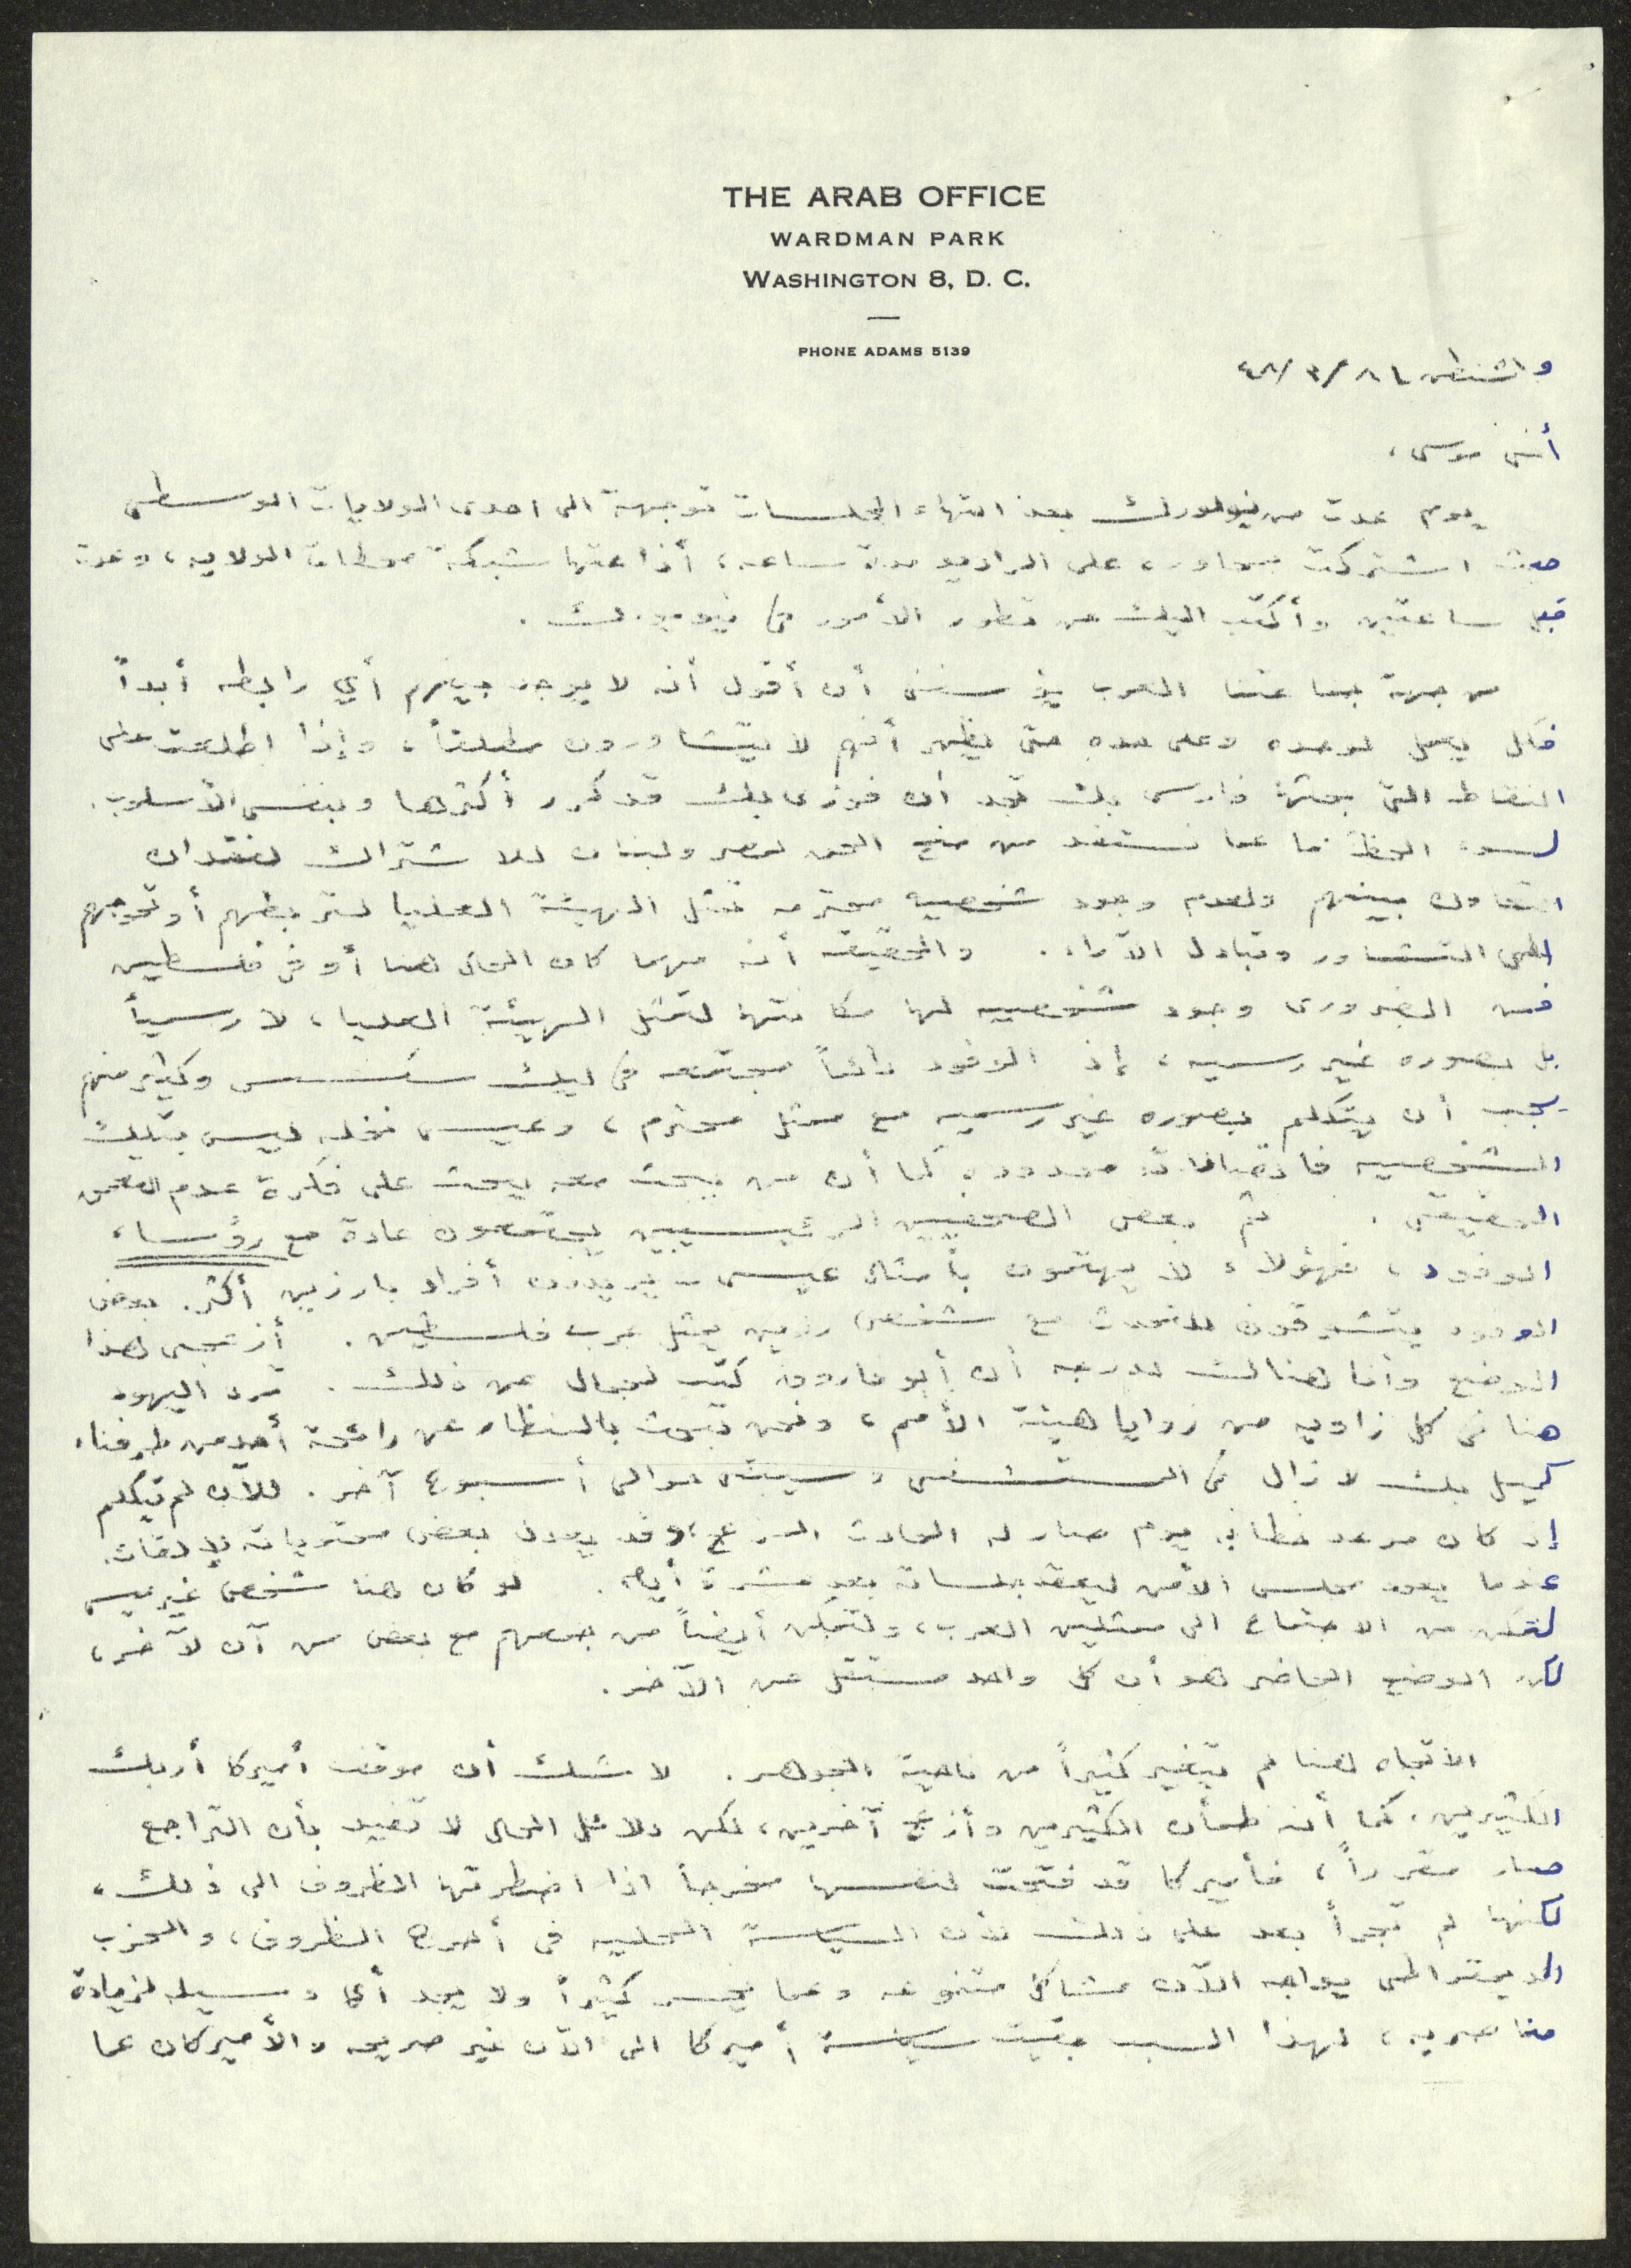 THE ARAB OFFICE
WARDMAN PARK
WASHINGTON 8, D. C.
PHONE ADAMS 5139
واشنطن ٤٨/٣/
أخي موسى،
يوم عدت من نيويورك بعد انتهاء الجلسات توجهت الى احدى الولايات الوسطى
حيث اشتركت على الراديو مدة ساعه، أذاعتها شبكة محطات الولايه، وعدت
قبل ساعتين وأكتب اليك عن تطور الأمور في نيويورك.
من جهة جماعتنا العرب أن أقول أنه لا يوجد بينهم أي رابطه أبداً
فكل يعمل لوحده وعلى حده حتى يظهر أنهم لا يتشاورون مطلقاً، وإذا اطلعت على
النقاط التي بحثها فارس بك تجد أن فوزي بك قد كرر أكثرها وبنفس الأسلوب.
لسوء الحظ فاننا نستفد من منح الحق لمصر ولبنان للاشتراك لفقدان
التعاون بينهم ولعدم وجود شخصيه محترمه تمثل الهيئة العليا لتربطهم أو توجههم
الى التشاور وتبادل الآراء. والحقيقه أنه مهما كان الحال هنا أو في فلسطين
فمن الضروري وجود شخصيه لها مكانتها لتمثل الهيئة العليا، لا رسمياً
بل بصوره غير رسميه، إذ الوفود دائماً مجتمعه في ليك سكسس وكثير منهم
يجب أن يتكلم بصوره غير رسميه مع ممثل محترم، وعيسى نخله ليس بتلك
الشخصيه فاتصالاته محدوده كما أن من يبحث معه يبحث على فكرة عدم التعمق
الحقيقي. ثم بعض الصحفيين الرئيسيين يجتمعون عادة مع رؤساء
الوفود، فهؤلاء لا يهتمون بأمثال عيسى - يريدون أفراد بارزين أكثر. بعض
الوفود يتشوقون للتحدث مع شخص رزين يمثل عرب فلسطين. أزعجني هذا
الوضع وأنا هنالك لدرجه أن أبو فاروق كتب لجمال عن ذلك. ترى اليهود
هنا في كل زاويه من زوايا هيئة الأمم، ونحن نبحث بالمنظار عن رائحة أحد من طرفنا.
كميل بك لا زال في المستشفى وسيبقى حوالي أسبوع آخر. للآن لم يتكلم
إذ كان موعد خطابه يوم صار له الحادث المزعج، وقد يعدل بعض محتوياته للإلقاء
عندما يعود مجلس الأمن ليعقد جلساته بعد عشرة أيام. لو كان هنا شخص غير عيسى
لتمكن من الاجتماع الى ممثلين العرب، ولتمكن أيضاً من جمعهم مع بعض من آن لآخر،
لكن الوضع الحاضر هو أن كل واحد مستقل عن الآخر.
الاتجاه هنا لم يتغير كثيراً من ناحية الجوهر. لا شك أن موقف أميركا أربك
الكثيرين، كما أنه طمأن الكثيرين وأزعج آخرين، لكن دلائل الحال لا تفيد بأن التراجع
صار مقرراً، فأميركا قد فتحت لنفسها مخرجاً اذا اضطرتها الظروف الى ذلك،
لكنها لم تجرأ بعد على ذلك لأن السياسة المحليه في أحرج الظروف، والحزب
الديمقراطي يواجه الآن مشاكل متنوعه وعما يخسر كثيراً ولا يجد أي وسيله لزيادة
مناصريه، لهذا السبب بقيت سياسة أميركا الى الآن غير صريحه والأميركان عما